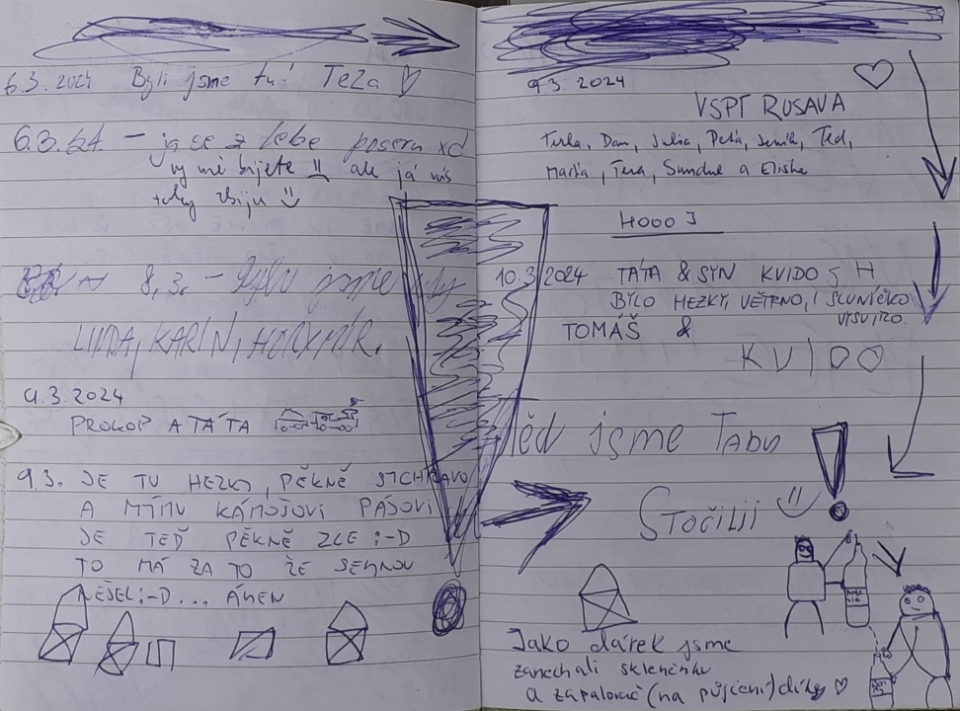 6.3. 2024 Byli jsme tu! Teza
6.3. - ja se z tebe poseru xd
vy mě bijete ale já vás
taky zbiju
8.3. - Byli jsme
LINDA, KARIN,
9.3.2024
PROKOP A TÁTA
9.3. JE TU HEZKY, PĚKNĚ
A MÝMU KÁMOŠOVI PÁJOVI
JE TEĎ PĚKNĚ ZLE :-D
TO MÁ ZA TO ŽE SEMNOU
NEŠEL :-D ... ÁMEN
9.3. 2024
VSPT RUSAVA
Dan, Julia, Peťa, Ted,
a Eliška
HOOO J
10.3.2024 TÁTA & SYN KVIDO
BYLO HEZKY, VĚTRNO, I SLUNÍČKO
TOMÁŠ &
KVIDO
jsme Tady
Stočilii
Jako dárek jsme
zanechali skleněnku
a zapalovač (na půjčení) díky